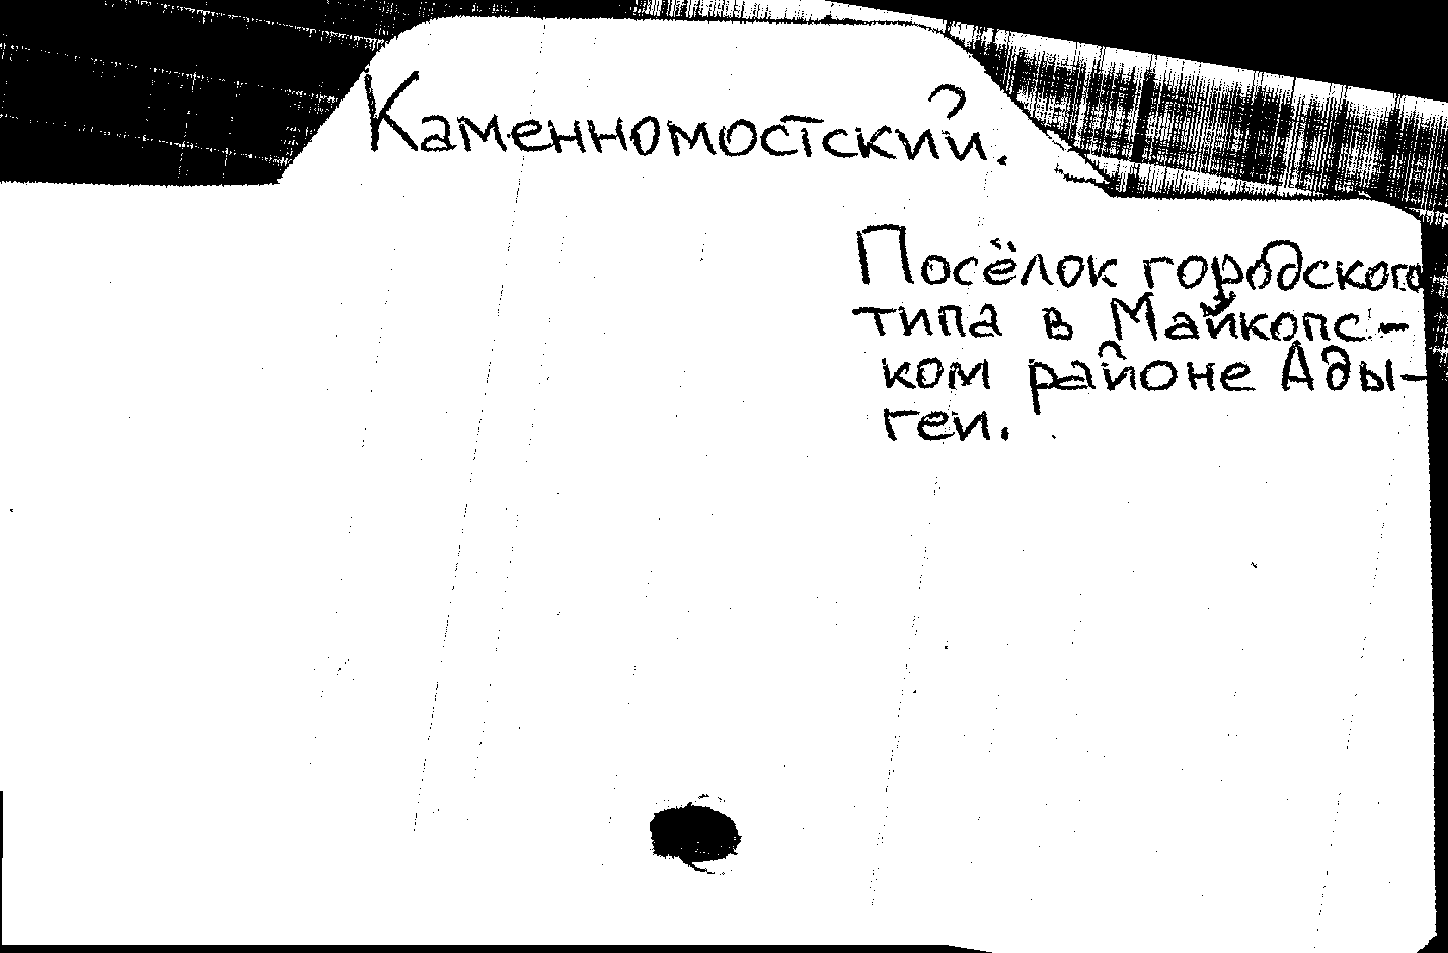 Каменномостский.
Посёлок городского
типа в Майкопс-
ком районе Ады-
геи.